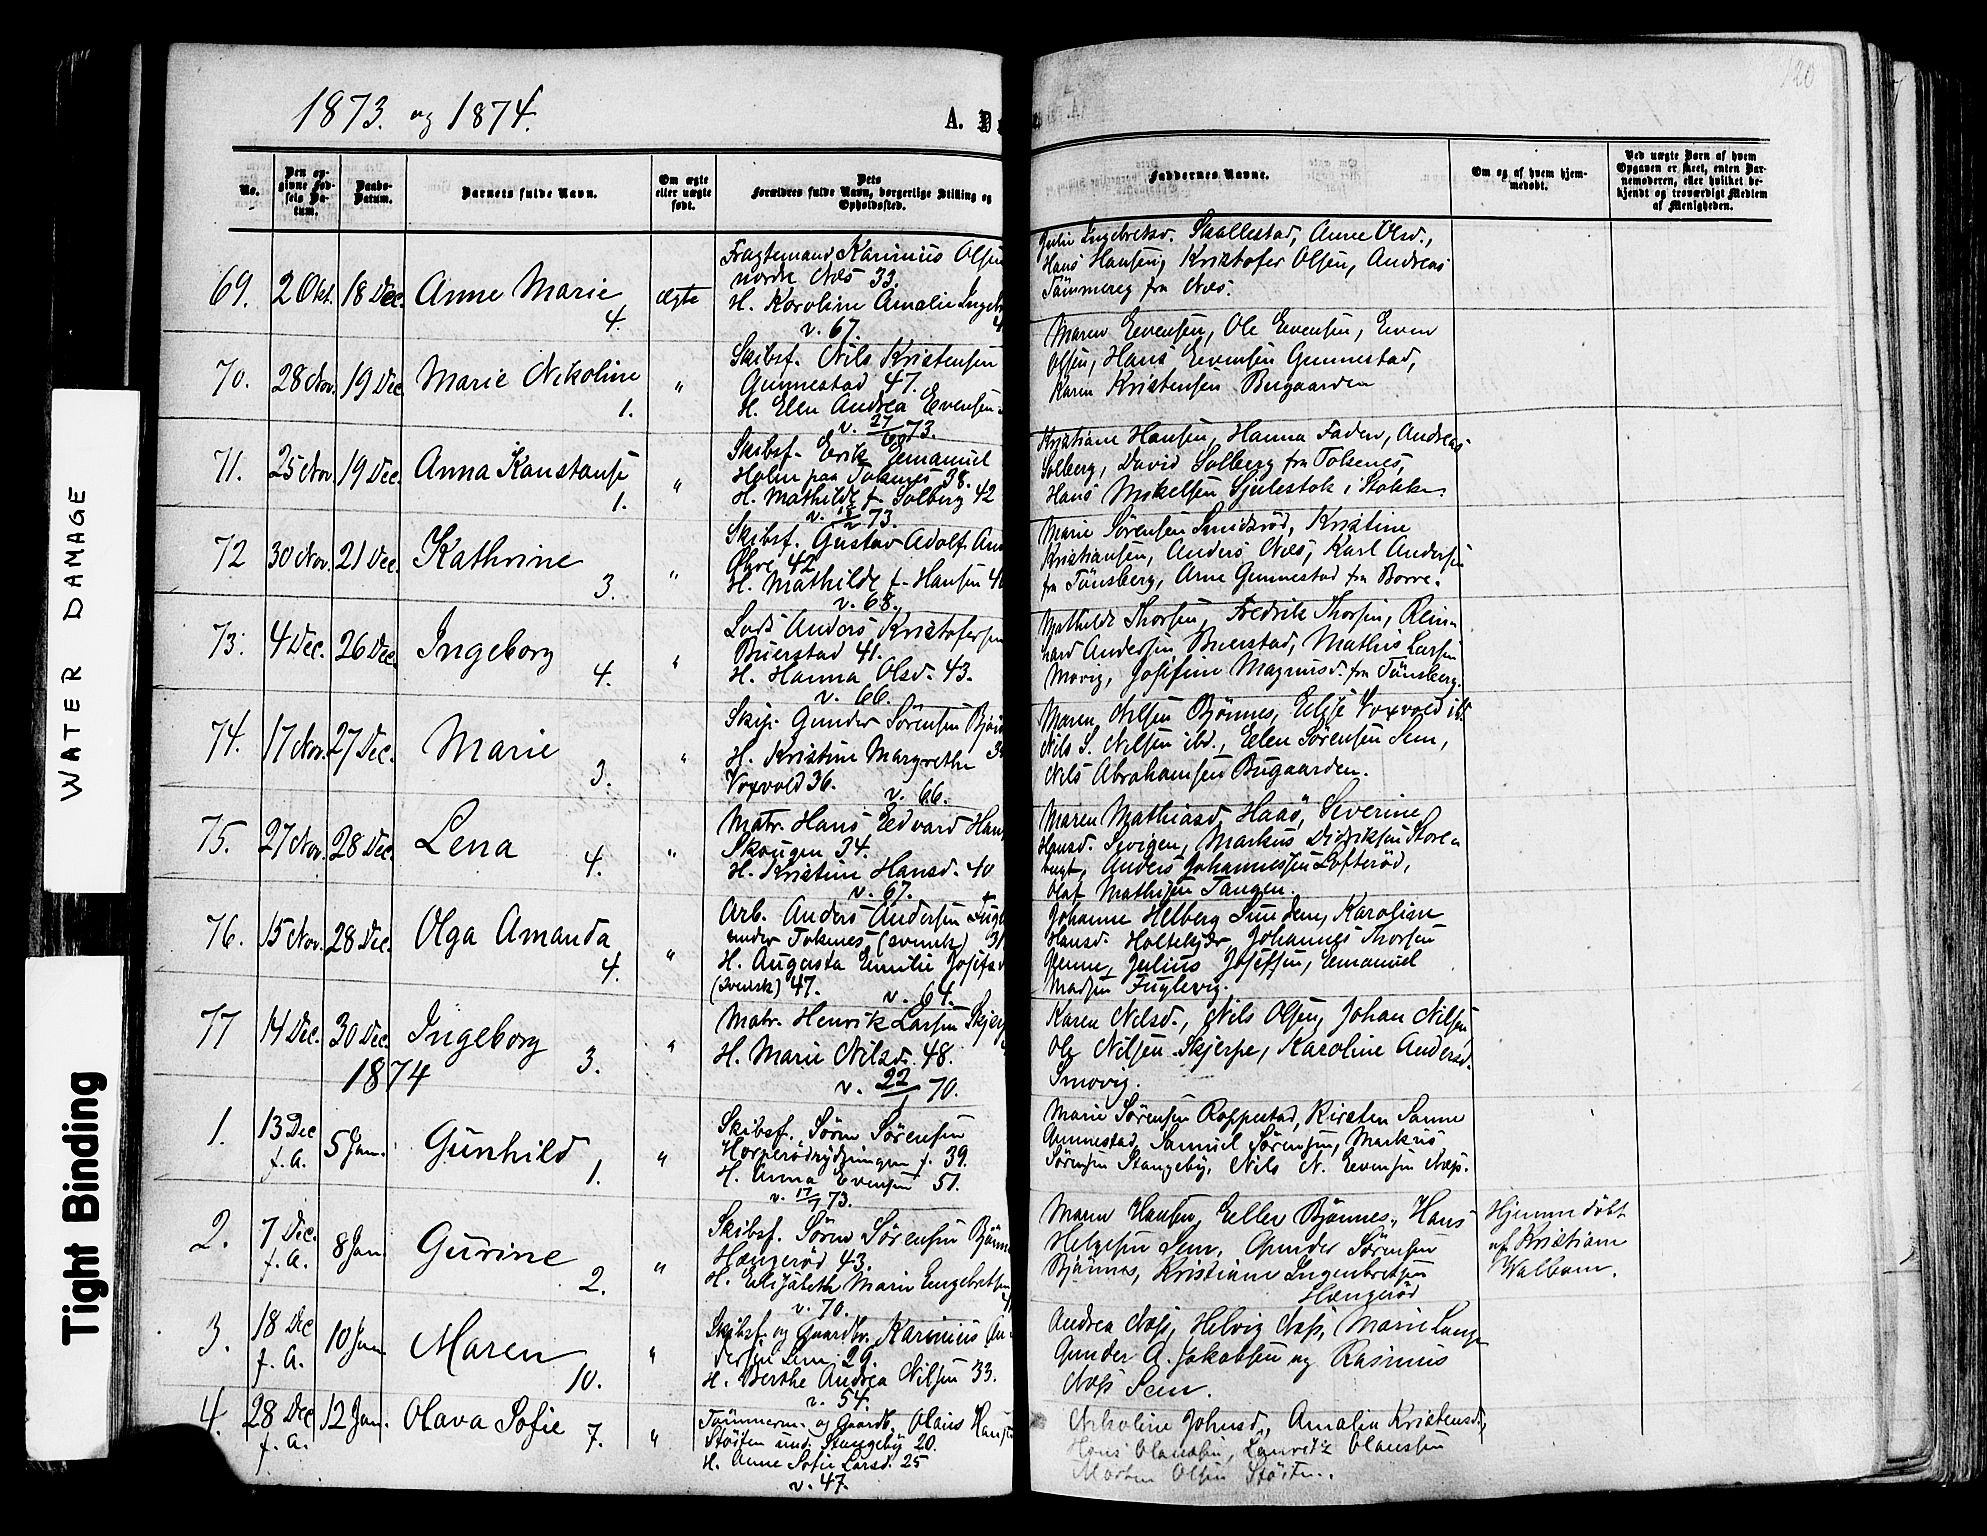 1873. og 1874.
A. D
120
No.
Den opgivne Fødsels Datum.
Daabs-Datum.
Barnets fulde Navn.
Om ægte eller uægte født.
Dets Forældres fulde Navn, borgerlige Stilling og Opholdssted.
Faddernes Navne.
Om og af hvem hjemmedøbt.
Ved uægte Børn af hvem Opgaven er skeet, enten Barnemoderen, eller hvilket bekjendt og troværdigt Medlem af Menigheden.
69. 2 Okt. 18 Dec. Anne Marie 4. ægte
Fragtemand Karinius Olsen
nordre Næs 33.
H. Karoline Amalie Ingeb
v. 67.
Julie Ingebretsd. Skallestad, Anne Olsd.,
Hans Hansen, Kristofer Olsen, Andreas
Tömmereg fra Næs.
70. 28 Nov. 19 Dec. Marie Nikoline 1. "
Skibsf. Nils Kristensen
Gunnestad 47.
H. Elen Andrea Evensen
v. 27/6 73.
Maren Evensen, Ole Evensen, Even
Olsen, Hans Evensen Gunnestad,
Karen Kristensen Bugaarden
71. 25 Nov. 19 Dec. Anna Konstanse 1. "
Skibsf. Erik Emanuel
Holm paa Toknes 38.
H. Mathilde f. Solberg 42
v. 18/2 73.
Kristiane Hansen, Hanna Faden, Andreas
Solberg, David Solberg fra Toknes,
Hans Mikelsen Gjelestok i Stokke.
72 30 Nov. 21 Dec. Kathrine 3. "
Skibsf. Gustav Adolf An
Øhre 42
H. Mathilde f. Hansen 40
v. 68.
Marie Sörensen Smidsröd, Kristine
Kristiansen, Anders Næs, Karl Andersen
fra Tönsberg, Arne Gunnestad fra Borre.
73. 4 Dec. 26 Dec. Ingeborg 4. "
Lods Anders Kristofersen
Buerstad 41.
H. Hanna Olsd. 43.
v. 66.
Mathilde Thorsen, Fredrik Thorsen, Rein
hard Andersen Buerstad, Mathis Larsen
Movig, Josefine Magnusd. fra Tönsberg.
74. 17 Nov. 27 Dec. Marie 3. "
Skip. Gunder Sörensen Bjön
H. Kristine Margrethe 3
Voxvold 36.
v. 66.
Maren Nilsen Bjönnes, Elise Voxvold ibd.
Nils S. Nilsen ibd., Elen Sörensen Sem,
Nils Abrahamsen Bugaarden.
75. 27 Nov. 28 Dec. Lena 4. "
Matr. Hans Edvard Han
Skougen 34.
H. Kristine Hansd. 40
v. 67.
Maren Mathiasd. Haas, Severine
Hansd. Sevigen, Markus Didriksen Store
bugt, Anders Johannessen Lofteröd,
Olaf Mathisen Tangen.
76. 15 Nov. 28 Dec. Olga Amanda 4. "
Arb. Anders Andersen Fugl
under Toknes (svensk) 31
H. Augusta Emilie Josefsd
(svensk) 47.
v. 64.
Johanne Helberg Sundem, Karoline
Hansd. Holtekjær, Johannes Thorsen
Glenne, Julius Josefsen, Emanuel
Madsen Fuglevig.
77 14 Dec. 30 Dec. Ingeborg 3. "
Matr. Henrik Larsen Skjer
H. Marie Nilsd. 48.
v. 22/1 70.
Karen Nilsd., Nils Olsen, Johan Nilsen
Ole Nilsen Skjerpe, Karoline Andersd.
Smovig.
1874
1. 13 Dec f. A. 5 Jan. Gunhild 1. "
Skibsf. Sören Sörensen
Horperödrydningen f. 39.
H. Anna Evensen 51.
v. 17/1 73.
Marie Sörensen Roppestad, Kirsten Sanne
Gunnestad, Samuel Sörensen, Markus
Sörensen Stangeby, Nils N. Evensen Næss.
2. 7 Dec. f. A. 8 Jan. Gurine 2. "
Skibsf. Sören Sörensen Bjönn
Hængeröd 43.
H. Elisabeth Marie Engebretsen
v. 70.
Maren Hansen, Eller Bjönnes, Hans
Helgesen Sem, Gunder Sörensen
Bjönnes, Kristiane Ingenbretsen
Hængeröd
Hjemmedöbt
af Kristiane
Walbom.
3. 18 Dec f. A. 10 Jan. Maren 10. "
Skibsf. og Gaardbr. Karinius An
dersen Sem 29.
H. Berthe Andrea Nilsen 33.
v. 54.
Andrea Næss, Helvig Næss, Marie Lange
Gunder A. Jakobsen og Rasmus
Næss Sem.
4. 28 Dec f. A. 12 Jan. Olava Sofie 7. "
Tömmerm. og Gaardb. Olaus Hansen
Stösten und. Stangeby 20.
H. Anne Sofie Larsd. 25
v. 47.
Nikoline Johnsd., Amalie Kristensd.,
Hans Olaussen, Lauritz Olaussen
Morten Olsen Stösten.
WATER DAMAGE
Tight Binding